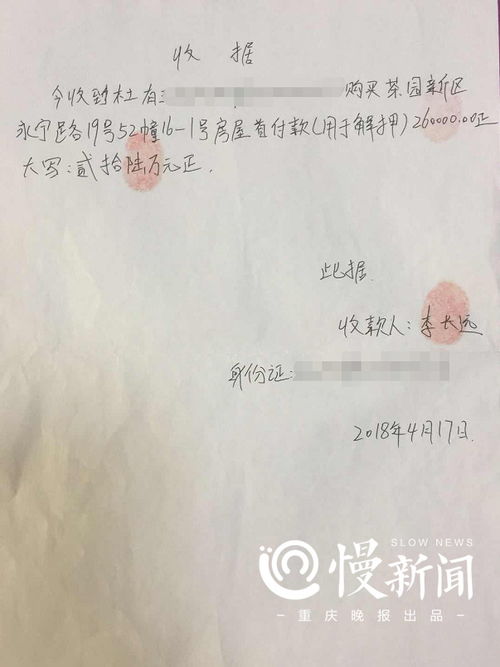 收 据
今收到杜有 购买茶园新区
永宁路19号52幢16-1号房屋首付款(用于解押)260000.00正
大写:贰拾陆万元正.
此据.
收款人:李长远
身份证:
2018年4月17日.
SLOW NEWS
慢新闻
－重庆晚报出品－